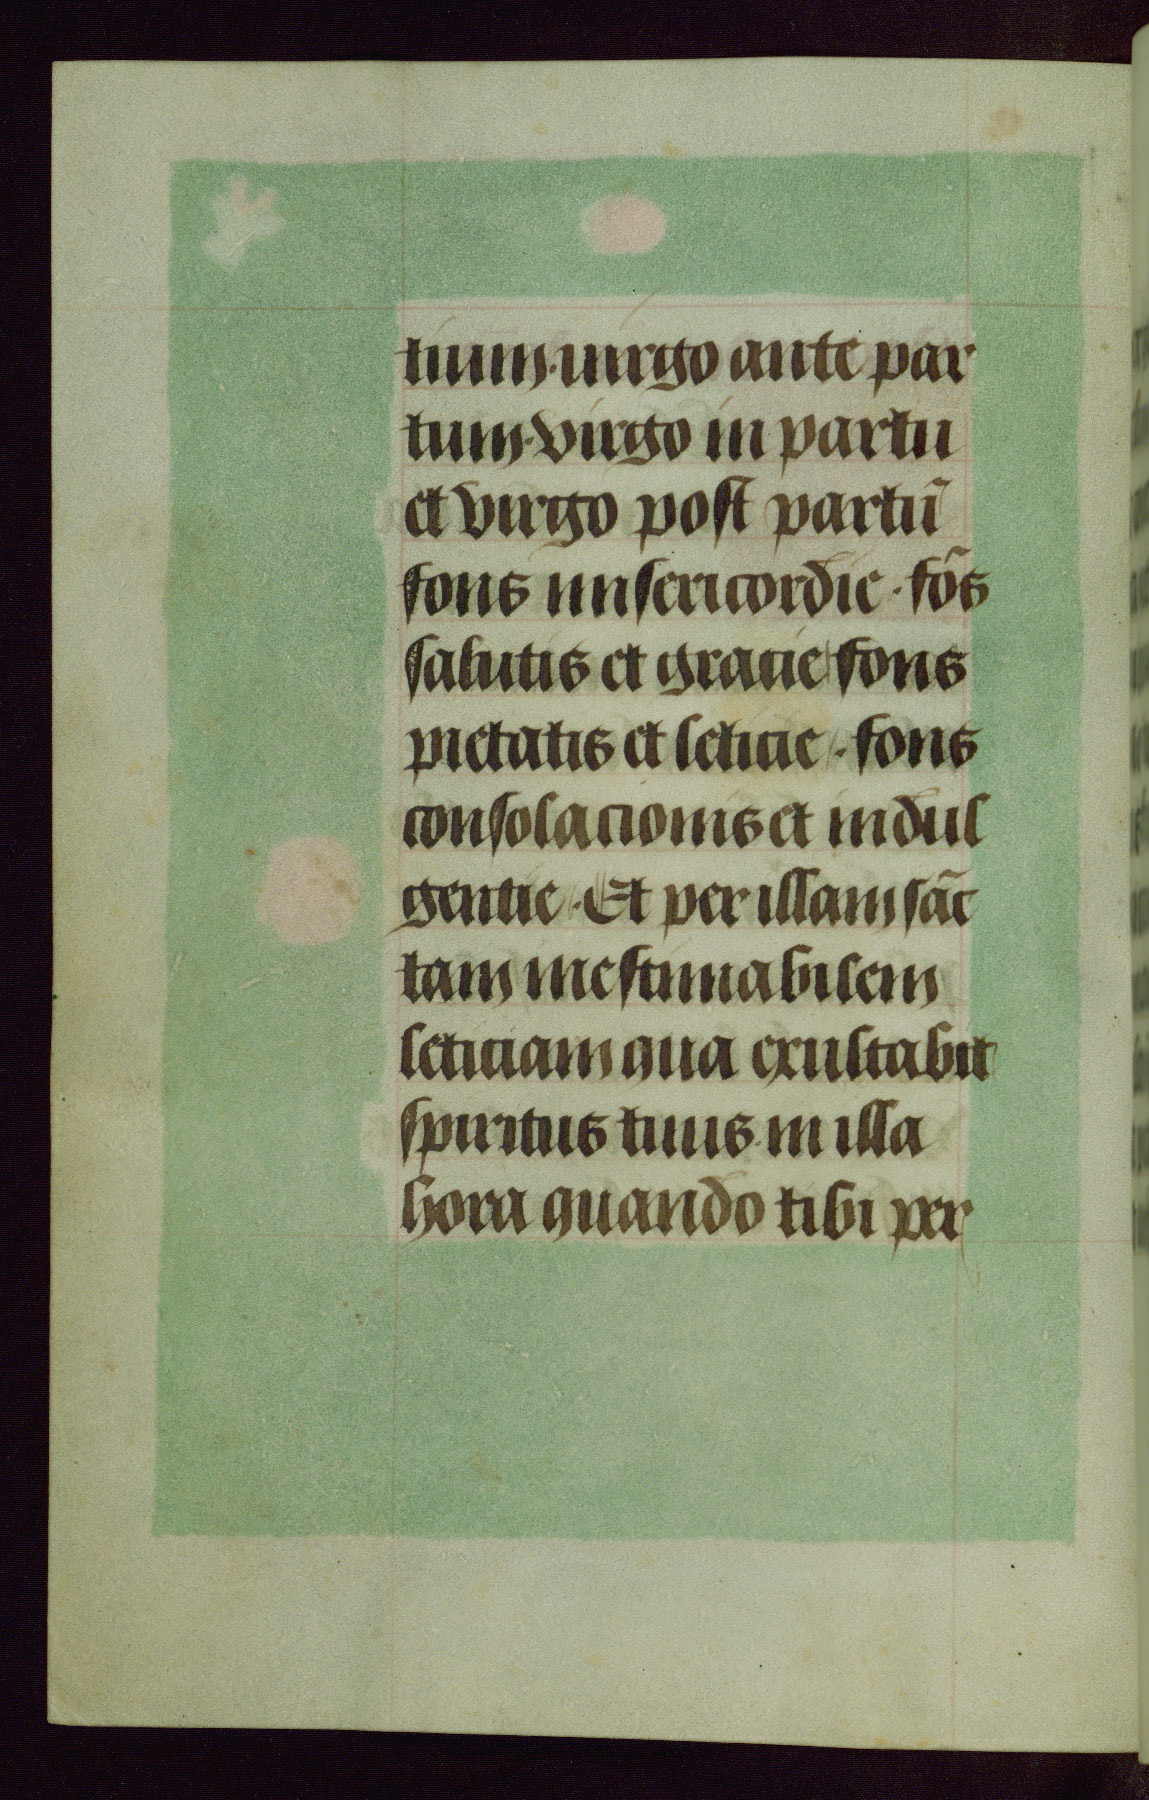 tuum. uirgo ante par
tum. virgo in partu
et virgo post partū
fons misericordie. fōs
salutis et gracie fons
pietatis et leticie. fons
consolacionis et indul
gentie. Et per illam sāc
tam inestimabilem
leticiam qua exultabit
spiritus tuus in illa
hora quando tibi per